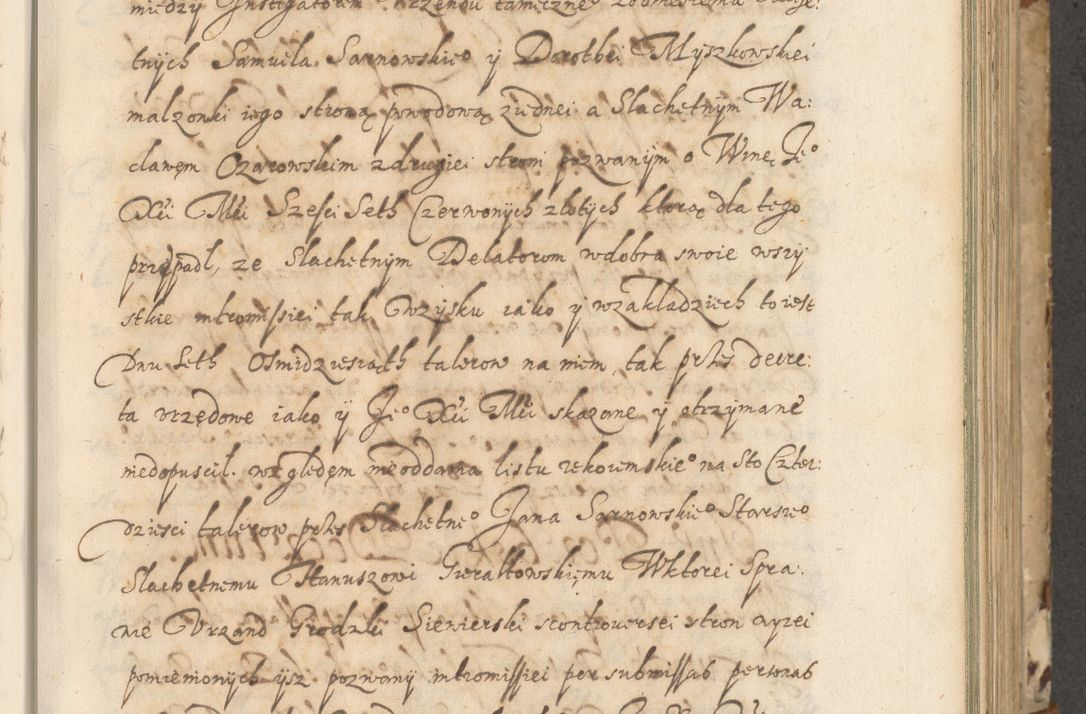 między Instigatorem Urzendu tamecznego
tnych Samuela Sarnowskieo y Dorothei Myszkowskiei
malzonki iego stroną powodową zudnei a Slachetnym Wa:
clawęm Ozarowskim zdrugiei stroni pozwanÿm o Winę Jeo
Xći Mći Szesci Seth Czerwonÿch zlotÿch ktorą dla tego
przÿpadl, ze Slachetnÿm Delatorom wdobra swoie wszÿ
stkie intromissiei tak Wzÿsku iako ÿ wzakladziech to iest
Dwu Seth Osmidziesiąth talerow na niem tak przes decre:
ta vrzędowe iako ÿ Jeo Xći Mći skazane y otrzÿmane
niedopuscil. względęm nieoddania listu rekoiemskieo na Sto Czter:
dziesci talerow przes Slachetneo Jana Sarnowskieo Starszeo
Slachetnemu Hanuszowi Gieraltowskięmu Wktorei Spra:
wie Vrzand Grodzki Siewierski scontrouersei stron
pomienionÿch ysz pozwanÿ intromissiei per submissas personas